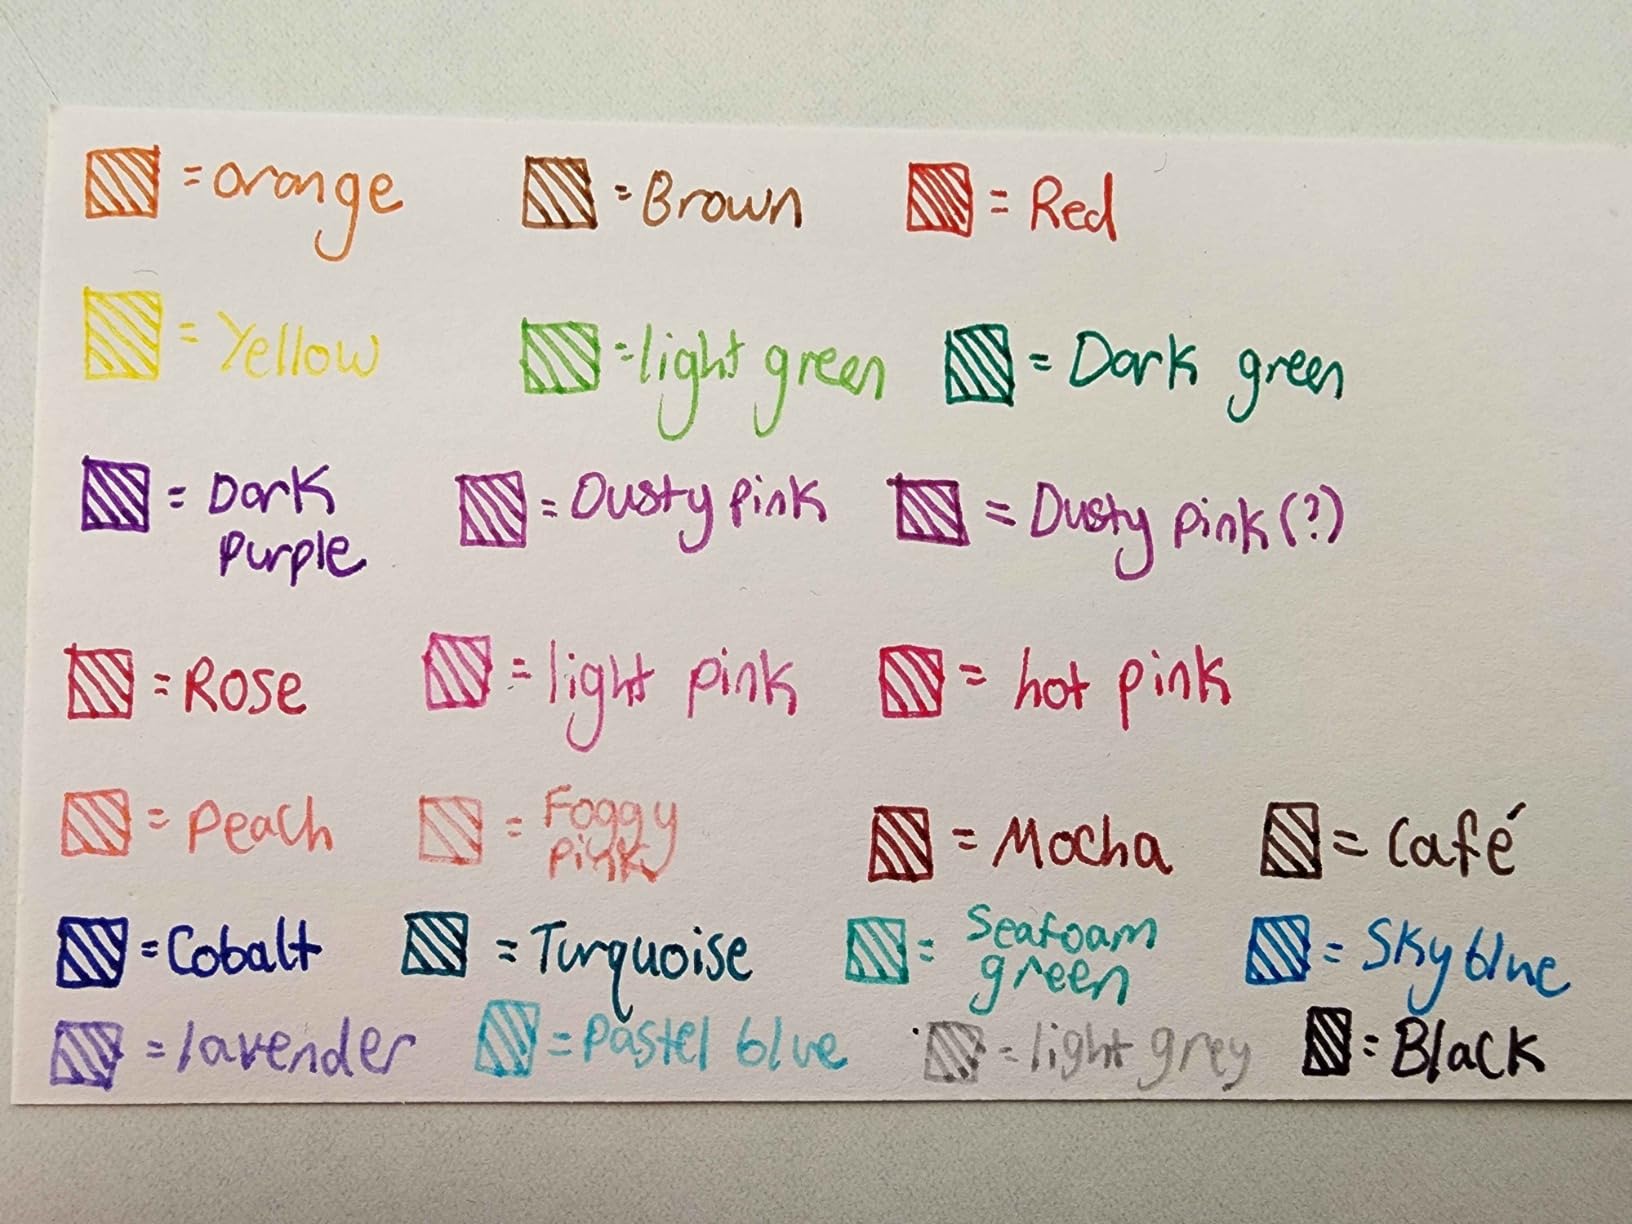 = orange = Brown = Red
= Yellow = light green = Dark green
= Dark purple = Dusty pink = Dusty pink (?)
= Rose = light pink = hot pink
= peach = Foggy pink = Mocha = Café
= Cobalt = Turquoise = Seafoam green = Sky blue
= lavender = Pastel blue = light grey = Black